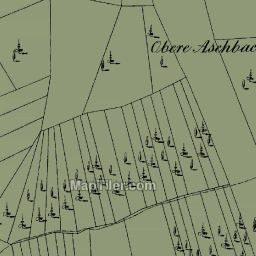 Obere Aschbac
MapTiler.com